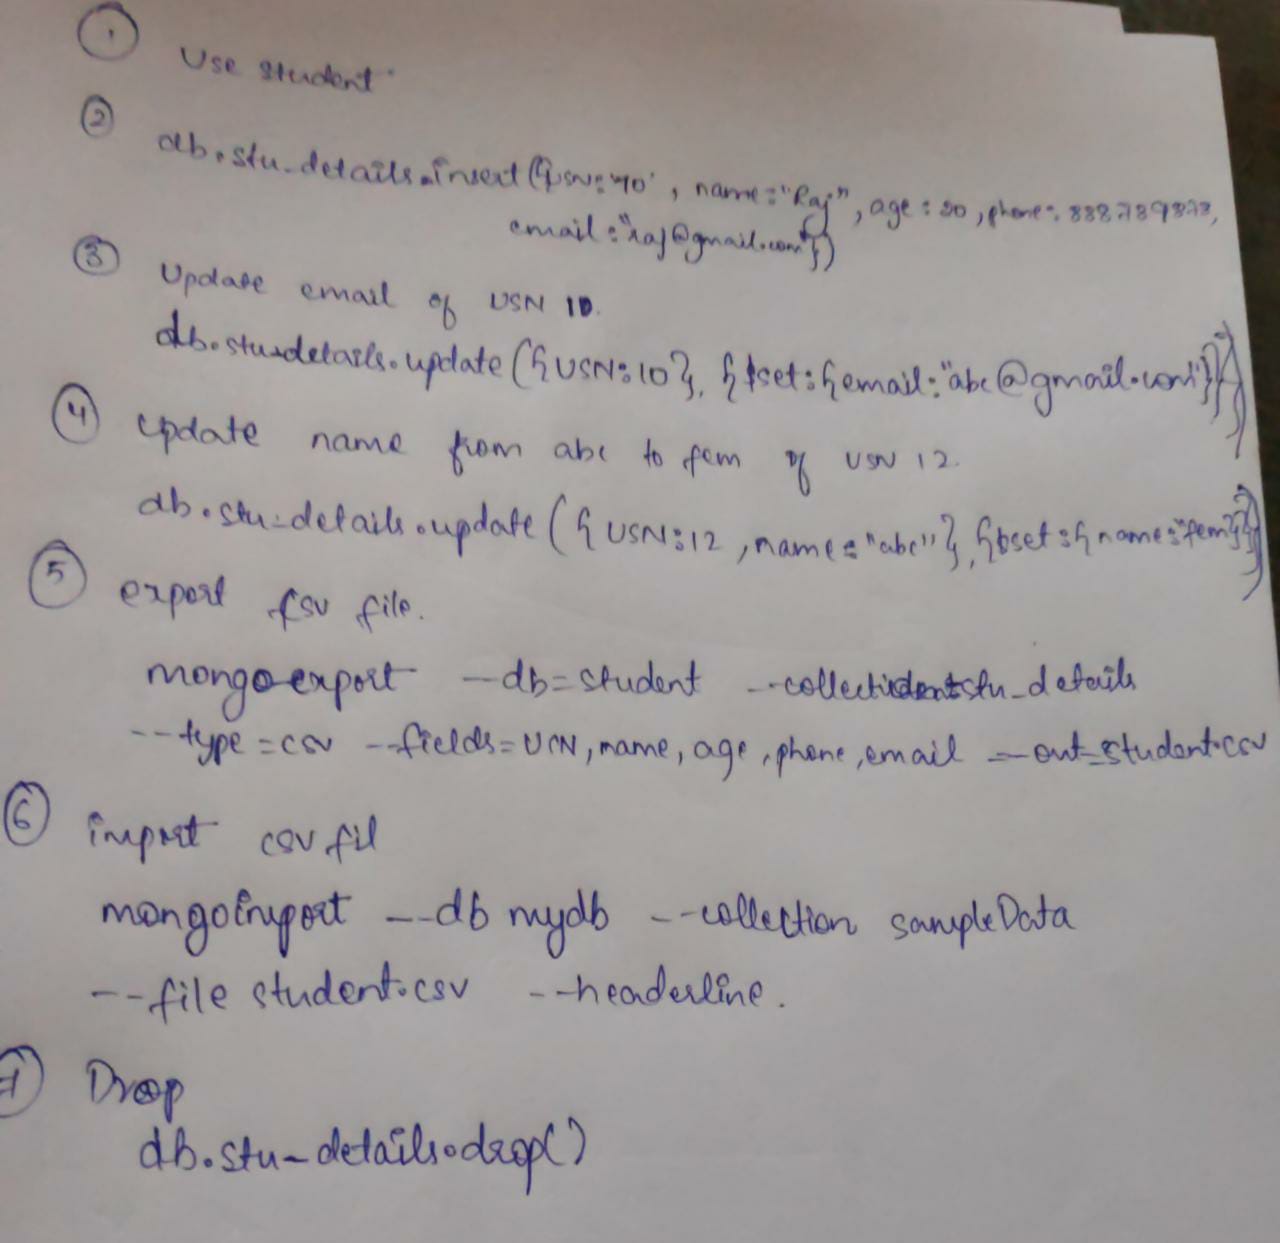 ① Use student
② db.stu_details.insert({usn:"10", name:"Raj", age:20, phone:
email:"raj@gmail.com"})
③ Update email of USN 10.
db.stu_details.update({USN:10}, {$set:{email:"abc@gmail.com"}})
④ update name from abc to fem of USN 12.
db.stu_details.update({USN:12, name:"abc"}, {$set:{name:"fem}})
⑤ export file.
mongoexport --db=student stu_details
--type=csv --fields= name, age, phone, email --out=student.csv
⑥ import csv fil
mongoimport --db mydb --collection sampleData
--file student.csv --headerline.
⑦ Drop
db.stu_details.drop()